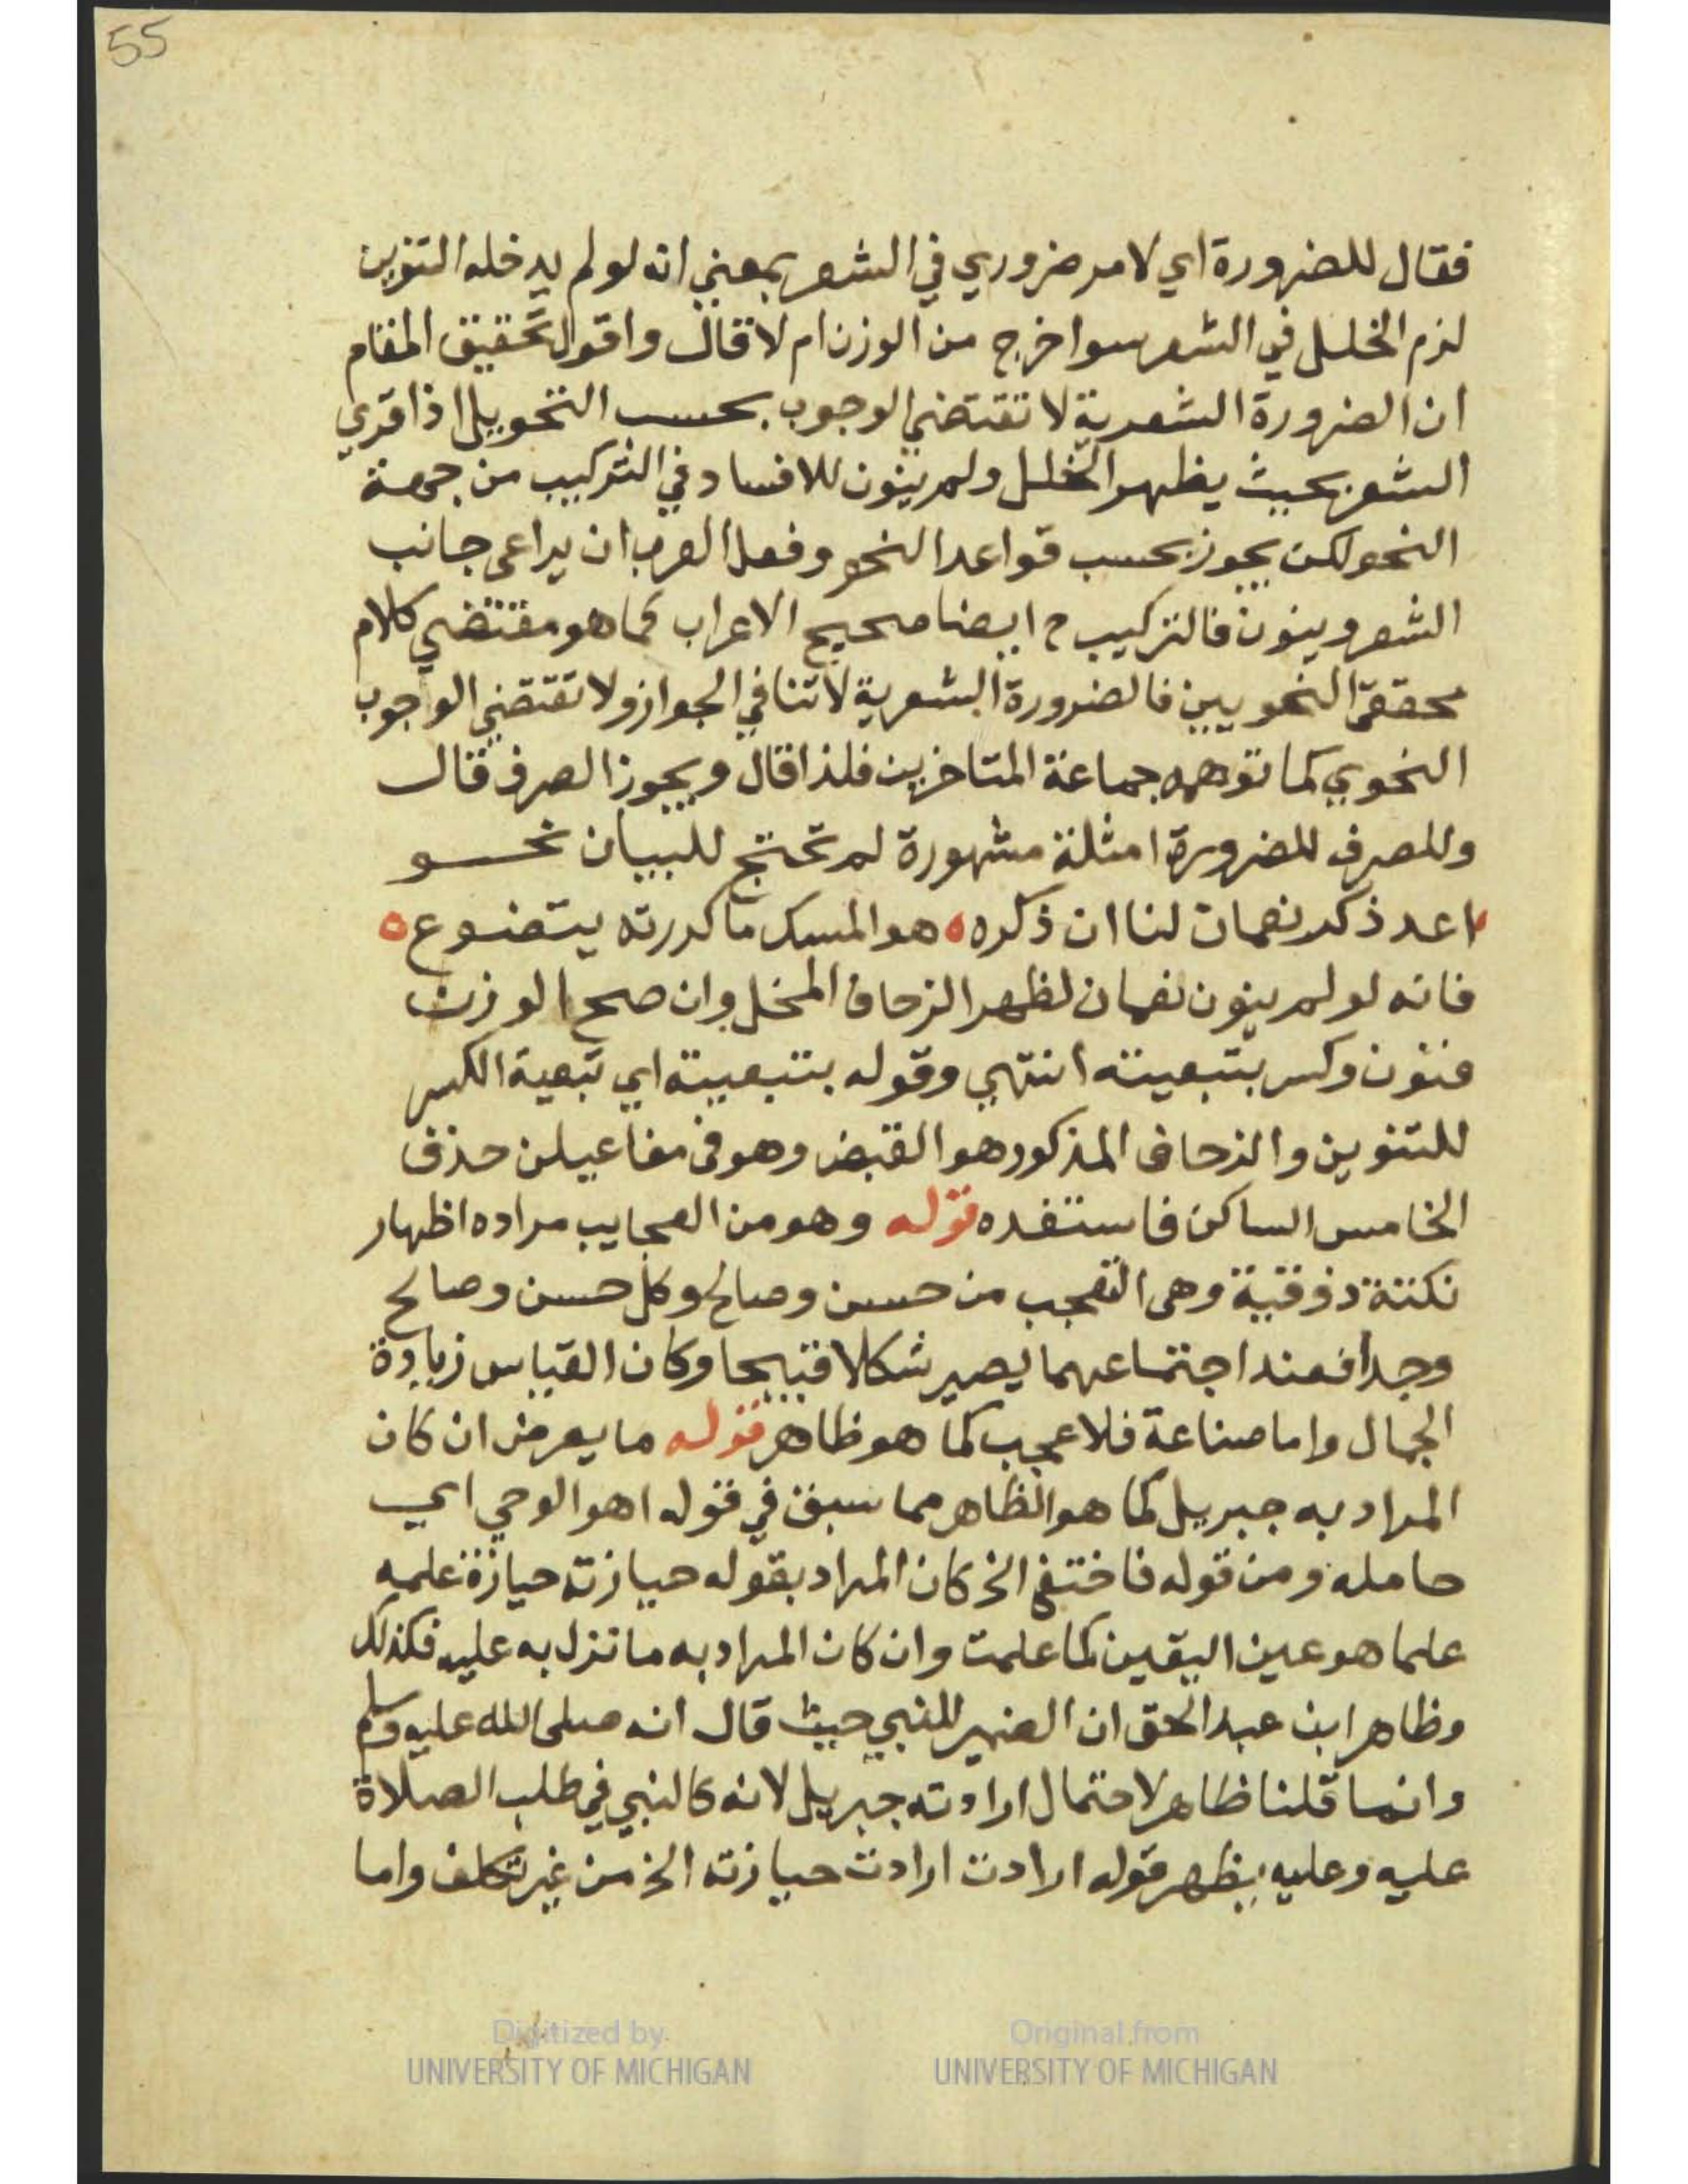 55
فقال للضرورة اي لامر ضروري في الشعر بمعني انه لو لم يدخله التنوين
لزم الخلل في الشعر سوا خرج من الوزن ام لا قال واقول تحقيق المقام
ان الضرورة الشعرية لا تقتضي الوجوب بحسب النحو بل اذا قري
الشعر بحيث يظهر الخلل ولم ينون للافساد في التركيب من جهة
النحو لكن يجوز بحسب قواعد النحو وفعل العرب ان يراعى جانب
الشعر وينون فالتركيب ح ايضا صحيح الاعراب كما هو مقتضي كلام
محققي النحويين فالضرورة الشعرية لا تنافي الجواز ولا تقتضي الوجوب
النحوي كما توهمه جماعة المتاخرين فلذا قال ويجوز الصرف قال
وللصرف للضرورة امثلة مشهورة لم تحتج للبيان نحو
اعد ذكر نعمان لنا ان ذكره ه هو المسك ما كررته يتضوع ه
فانه لو لم ينون نعمان لظهر الزحاف المخل وان صح الوزن
فنون وكسر بتبعيته انتهي وقوله بتبعيته اي تبعية الكسر
للتنوين والزحاف المذكور هو القبض وهو في مفاعيلن حذف
الخامس الساكن فاستفده قوله وهو من العجايب مراده اظهار
نكتة ذوقية وهي التعجب من حسن وصالح وكل حسن وصالح
وجدا فعند اجتماعهما يصير شكلا قبيحا وكان القياس زيادة
الجمال واما صناعة فلا عجب كما هو ظاهر قوله ما يعرض ان كان
المراد به جبريل كما هو الظاهر مما سبق في قوله اهو الوحي اي
حامله ومن قوله فاختفي الخ كان المراد بقوله حيازته حيازة علمه
علما هو عين اليقين كما علمت وان كان المراد به ما تنزل به عليه فكذلك
وظاهر ابن عبد الحق ان الضمير للنبي حيث قال انه صلى الله عليه وسلم
وانما قلنا ظاهر لاحتمال ارادته جبريل لانه كالنبي في طلب الصلاة
عليه وعليه يظهر قوله ارادت ارادت حيازته الخ من غير تكلف واما
Digitized by UNIVERSITY OF MICHIGAN
Original from UNIVERSITY OF MICHIGAN